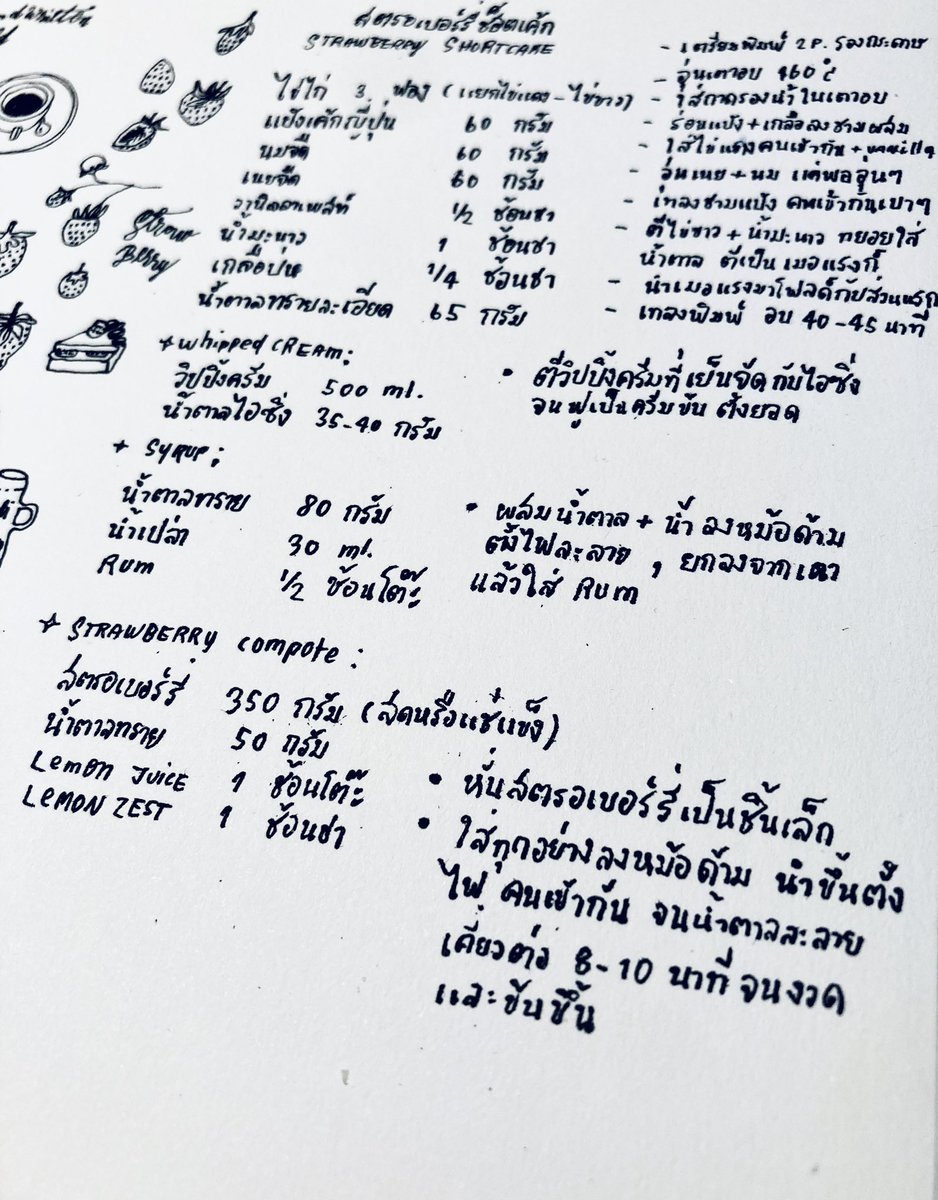 สตรอเบอร์รี่ช็อตเค้ก
STRAWBERRY SHORTCAKE
ไข่ไก่ 3 ฟอง (แยกไข่แดง - ไข่ขาว)
แป้งเค้กญี่ปุ่น 60 กรัม
นมจืด 60 กรัม
เนยจืด 60 กรัม
วานิลลาเพสท์ 1/2 ช้อนชา
น้ำมะนาว 1 ช้อนชา
เกลือป่น 1/4 ช้อนชา
น้ำตาลทรายละเอียด 65 กรัม
- เตรียมพิมพ์ 2 P. รองกระดาษ
- อุ่นเตาอบ 160 °c
- ใส่ถาดรองน้ำในเตาอบ
- ร่อนแป้ง + เกลือลงชามผสม
- ใส่ไข่แดงคนเข้ากัน + vanilla
- อุ่นเนย + นม แค่พออุ่นๆ
- เทลงชามแป้ง คนเข้ากันเบาๆ
- ตีไข่ขาว + น้ำมะนาว ทยอยใส่
น้ำตาล ตีเป็นเมอแรงก์
- นำเมอแรงมาโฟลด์กับส่วนแรก
- เทลงพิมพ์ อบ 40-45 นาที
Straw
Berry
+ Whipped CREAM:
วิปปิ้งครีม 500 ml.
น้ำตาลไอซิ่ง 35-40 กรัม
• ตีวิปปิ้งครีมที่เย็นจัดกับไอซิ่ง
จนฟูเป็นครีมข้น ตั้งยอด
+ SYRUP:
น้ำตาลทราย 80 กรัม
น้ำเปล่า 30 ml.
Rum 1/2 ช้อนโต๊ะ
• ผสมน้ำตาล + น้ำ ลงหม้อด้าม
ตั้งไฟละลาย , ยกลงจากเตา
แล้วใส่ Rum
+ STRAWBERRY compote:
สตรอเบอร์รี่ 350 กรัม (สดหรือแช่แข็ง)
น้ำตาลทราย 50 กรัม
Lemon JUICE 1 ช้อนโต๊ะ
LEMON ZEST 1 ช้อนชา
• หั่นสตรอเบอร์รี่เป็นชิ้นเล็ก
• ใส่ทุกอย่างลงหม้อด้าม นำขึ้นตั้ง
ไฟ คนเข้ากัน จนน้ำตาลละลาย
เคี่ยวต่อ 8-10 นาที จนงวด
และข้นขึ้น